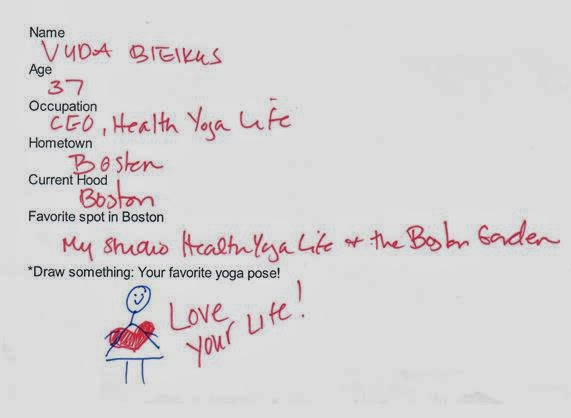 Name
VYDA BIELKUS
Age
37
Occupation
CEO, Health Yoga Life
Hometown
Boston
Current Hood
Boston
Favorite spot in Boston
My studio Health Yoga Life + the Boston Garden
*Draw something: Your favorite yoga pose!
LOVE
your Life!